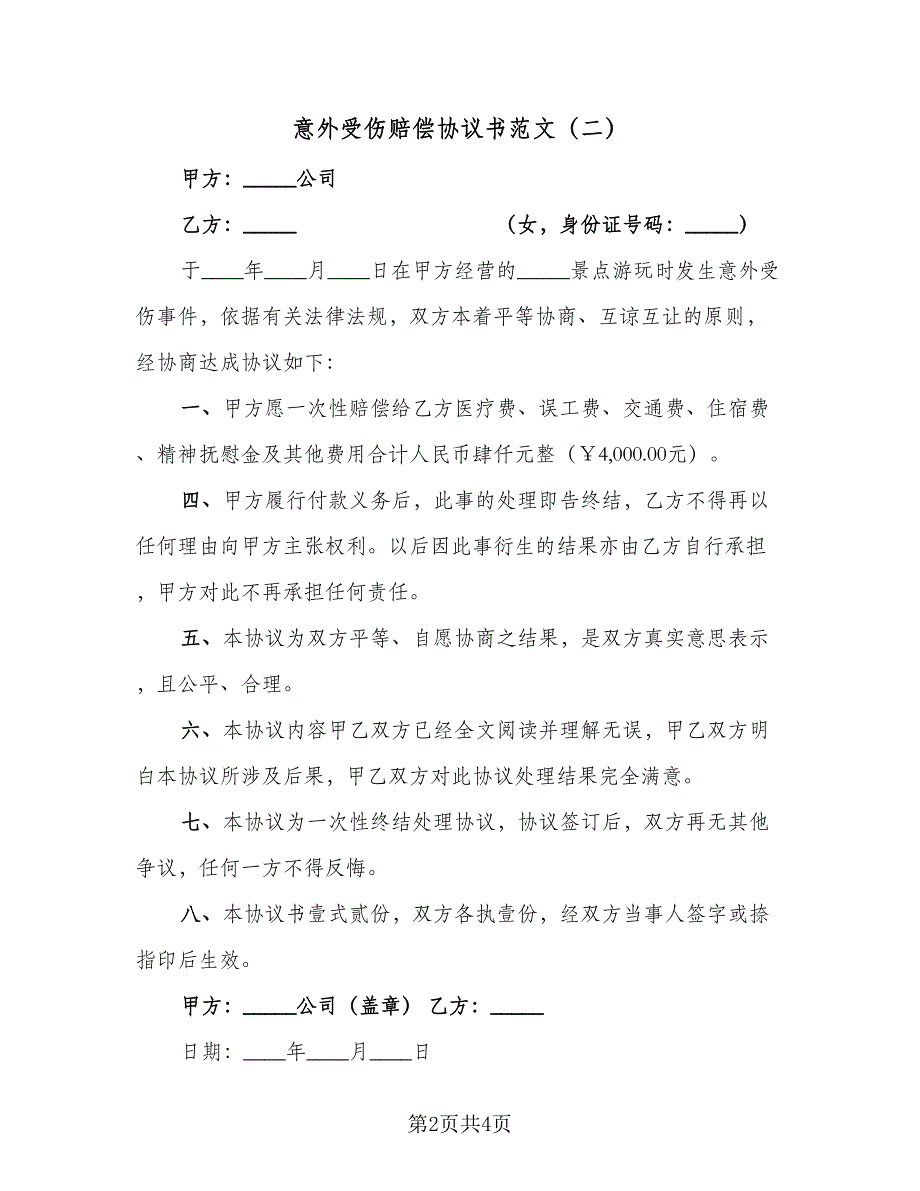 意外受伤赔偿协议书范文（二）
甲方：_____公司
乙方：_____ （女，身份证号码：_____）
于____年____月____日在甲方经营的_____景点游玩时发生意外受
伤事件，依据有关法律法规，双方本着平等协商、互谅互让的原则，
经协商达成协议如下：
一、甲方愿一次性赔偿给乙方医疗费、误工费、交通费、住宿费
、精神抚慰金及其他费用合计人民币肆仟元整（￥4,000.00元）。
四、甲方履行付款义务后，此事的处理即告终结，乙方不得再以
任何理由向甲方主张权利。以后因此事衍生的结果亦由乙方自行承担
，甲方对此不再承担任何责任。
五、本协议为双方平等、自愿协商之结果，是双方真实意思表示
，且公平、合理。
六、本协议内容甲乙双方已经全文阅读并理解无误，甲乙双方明
白本协议所涉及后果，甲乙双方对此协议处理结果完全满意。
七、本协议为一次性终结处理协议，协议签订后，双方再无其他
争议，任何一方不得反悔。
八、本协议书壹式贰份，双方各执壹份，经双方当事人签字或捺
指印后生效。
甲方：_____公司（盖章） 乙方：_____
日期：____年____月____日
第2页共4页